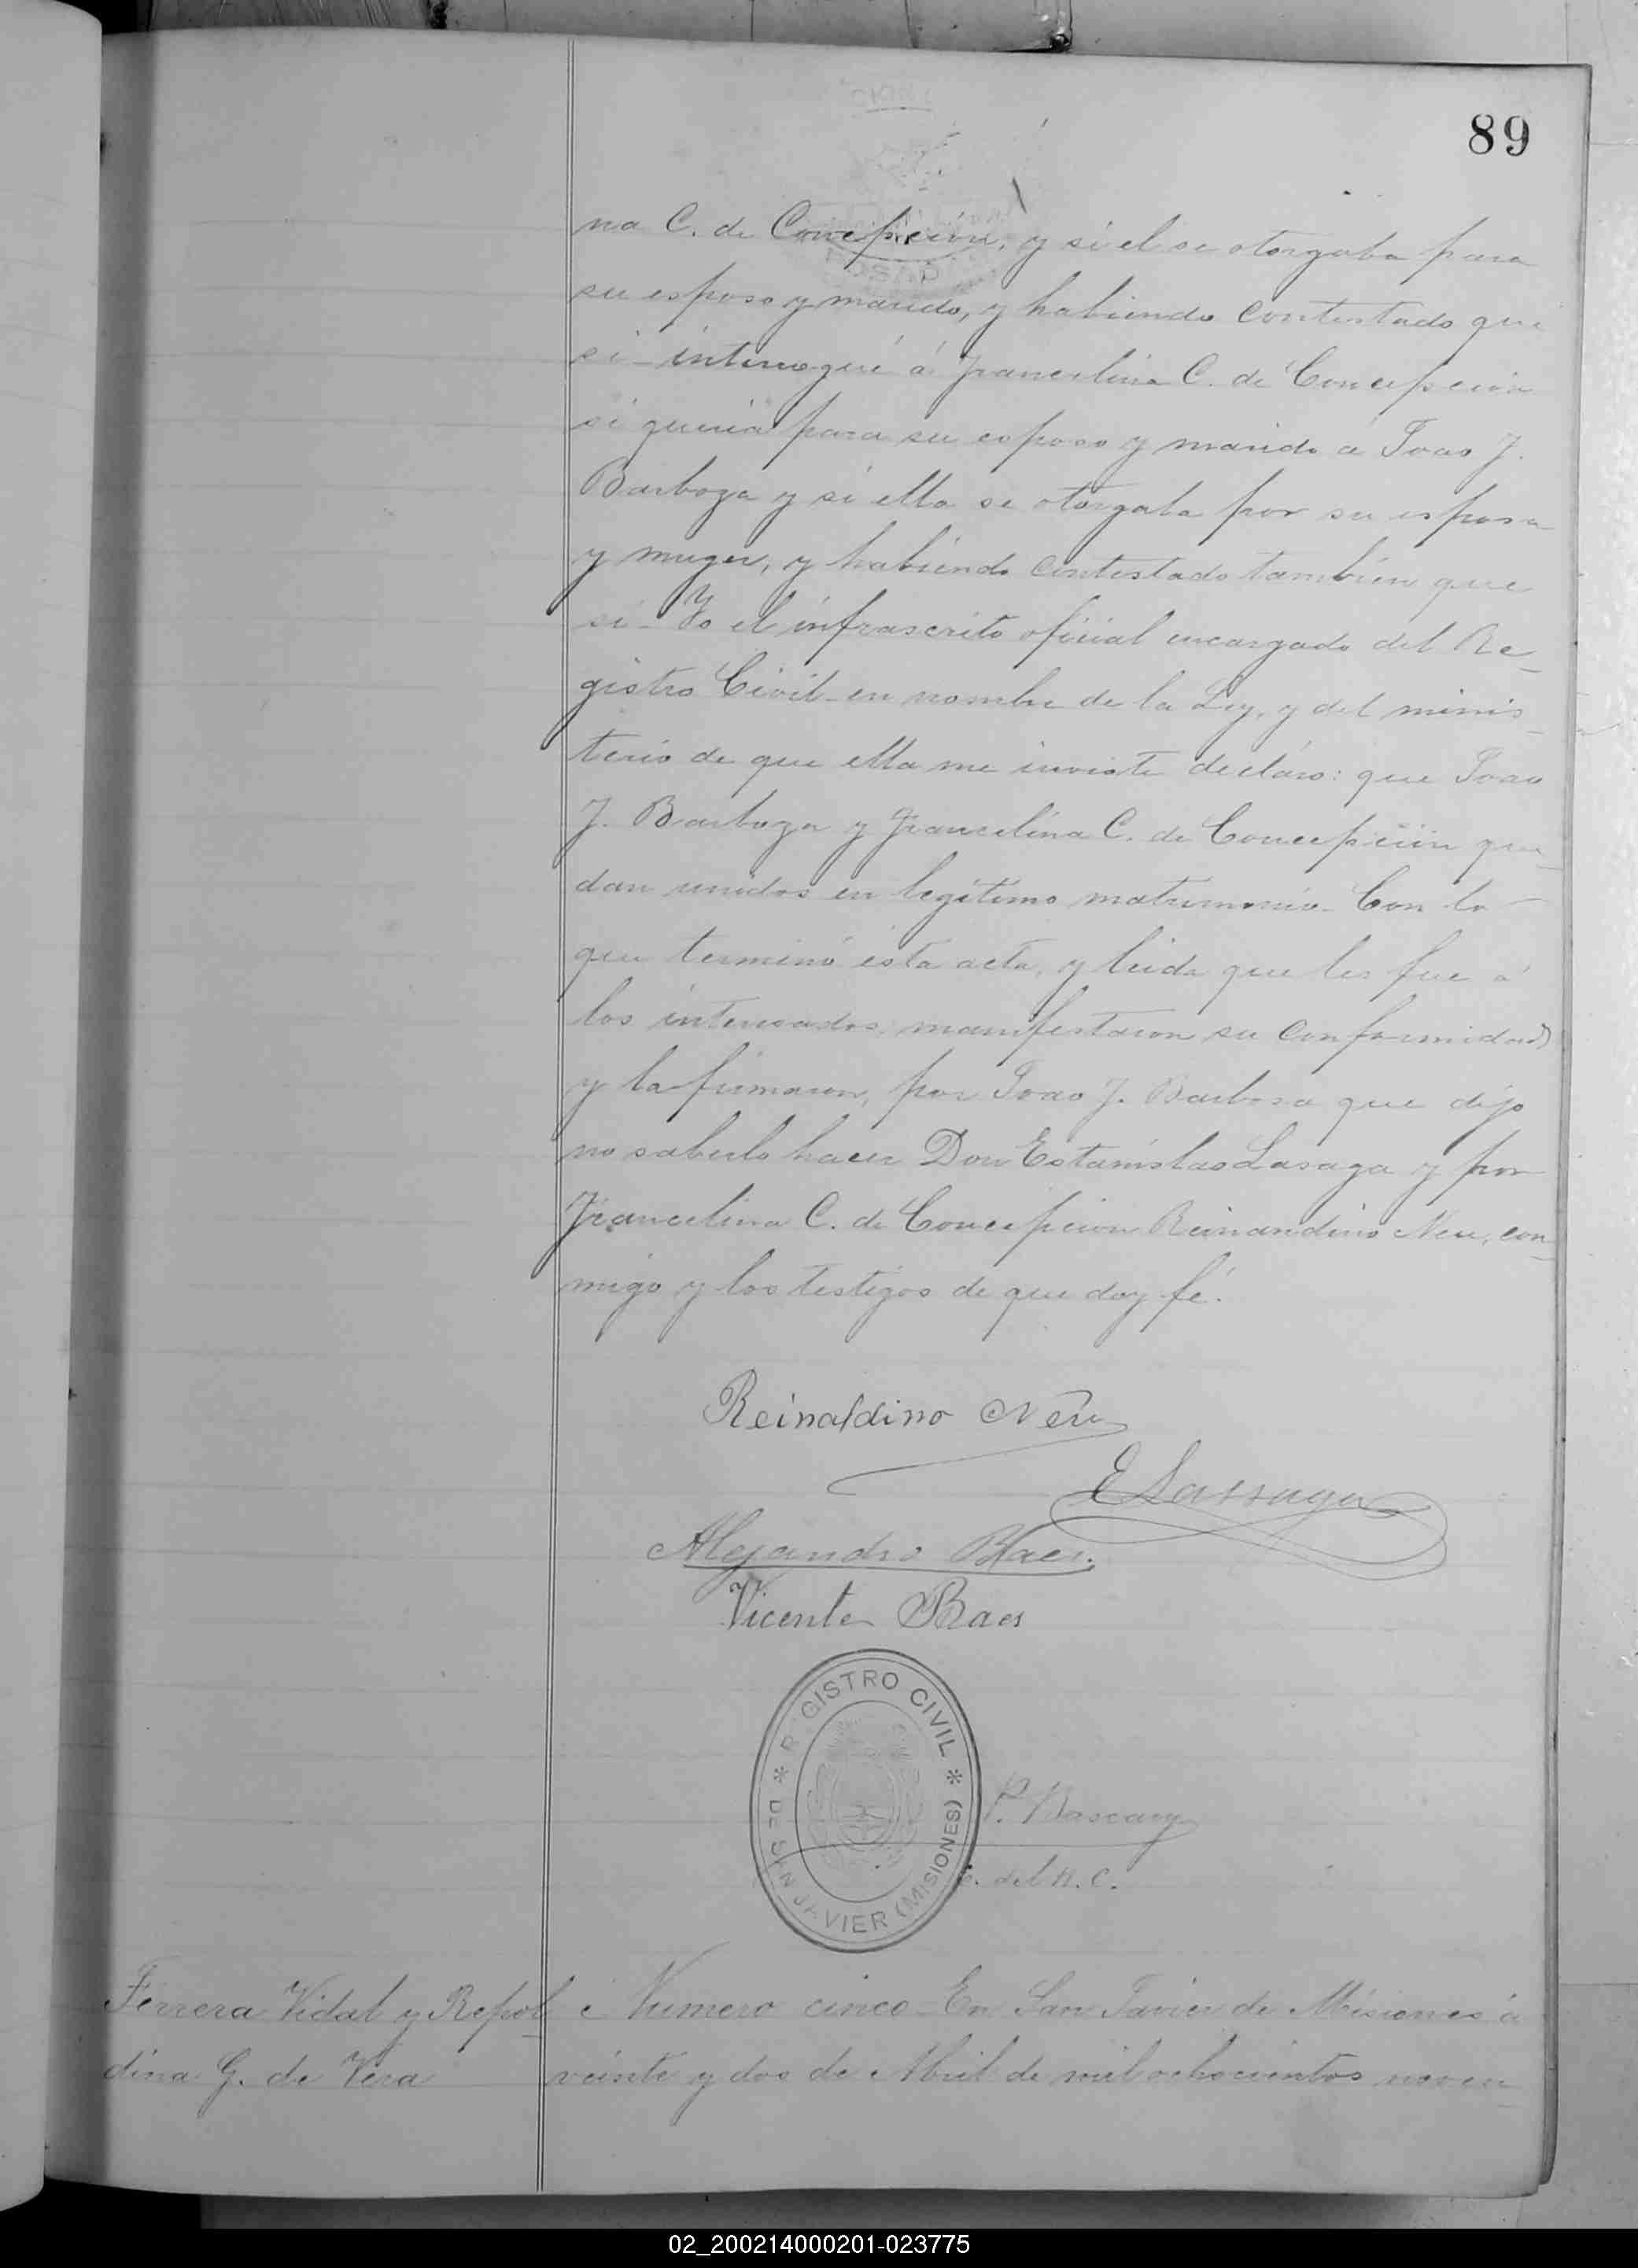 89
na C. de Concepción, y si el se otorgaba para
su esposo y marido, y habiendo contestado que
si - interrogué á Francelina C. de Concepción
si queria para su esposo y marido á Joao J.
Barboza y si ella se otorgaba por su esposa
y muger, y habiendo contestado tambien que
si - Yo el infrascrito oficial encargado del Re-
gistro Civil en nombre de la Ley, y del minis-
terio de que ella me inviste declaro: que Joao
J. Barboza y Francelina C. de Concepción que-
dan unidos en legitimo matrimonio - Con lo
que terminó esta acta, y leida que les fue á
los interesados, manifestaron su conformidad
y la firmaron, por Joao J. Barbosa que dijo
no saberlo hacer Don Estanislao Lasaga y por
Francelina C. de Concepcion Reinandino Neu, con-
migo y los testigos de que doy fé.
Reinaldino Neu
E Lassaga
Alejandro Baes.
Vicente Baes
R GISTRO CIVIL
DE SAN JAVIER (MISIONES)
del R. C.
Ferrera Vidal y Repol
dina G. de Vera
Numero cinco - En San Javier de Misiones á
veinte y dos de Abril de mil ochocientos noven-
02_200214000201-023775